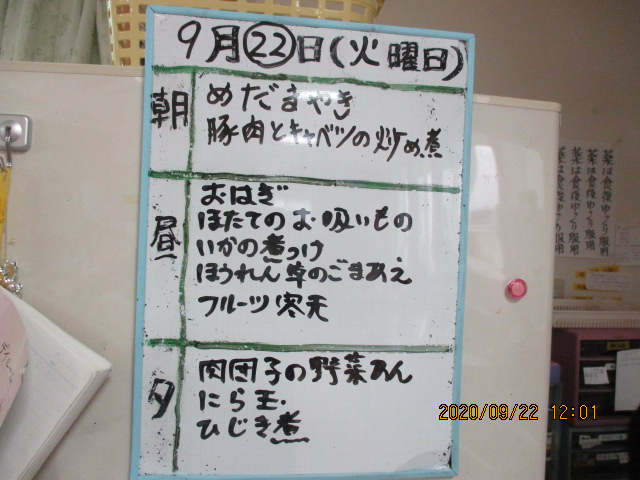 9月㉒日(火曜日)
朝
めだまやき
豚肉とキャベツの炒め煮
昼
おはぎ
ほたてのお吸いもの
いかの煮つけ
ほうれん草のごまあえ
フルーツ寒天
夕
肉団子の野菜あん
にら玉.
ひじき煮
薬は食後ゆっくり服用
薬は食後ゆっくり服用
薬は食後ゆっくり服用
薬は食後ゆっくり服用
2020/09/22 12:01